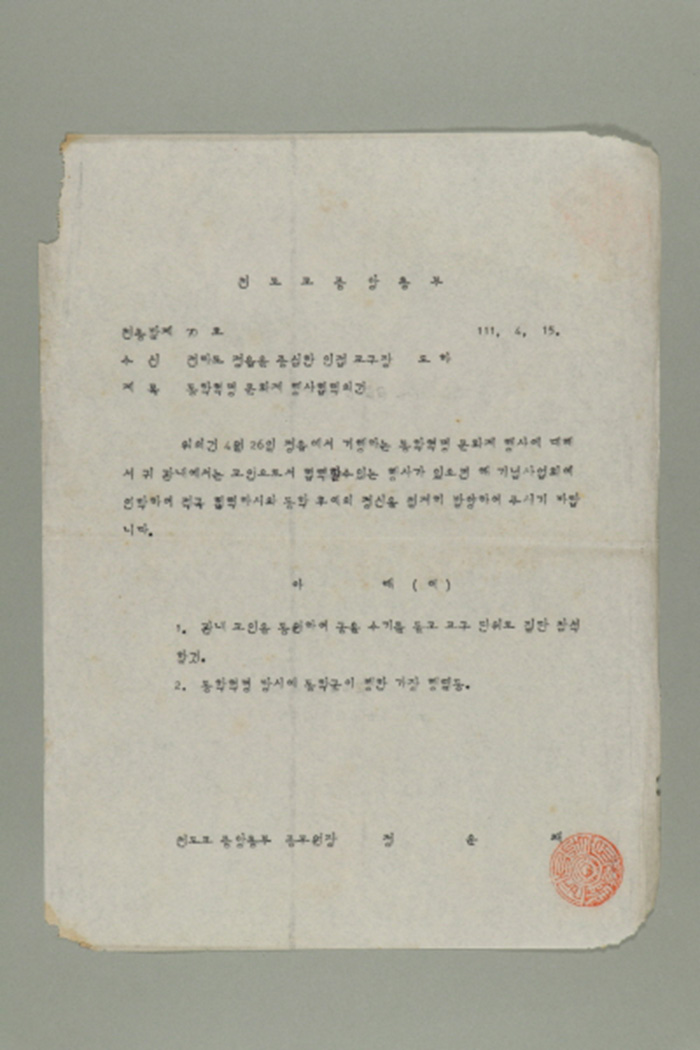 천 도 교 중 앙 총 부
천총발제 70 호 111. 4. 15.
수 신 전라도 정읍을 중심한 인접 교구장 도 하
제 목 동학혁명 문화제 행사협력의건
위의건 4월 26일 정읍에서 거행하는 동학혁명 문화제 행사에 대해
서 귀 관내에서는 교인으로서 협력할수있는 행사가 있으면 해 기념사업회에
연락하여 적극 협력하시와 동학 후예의 정신을 현저히 발양하여 주시기 바랍
니다.
아 래 ( 예 )
1. 관내 교인을 동원하여 궁을 수기를 들고 교구 단위로 집단 참석
할것.
2. 동학혁명 당시에 동학군이 행한 가장 행렬등.
천도교 중앙총부 교무원장 정 운 채